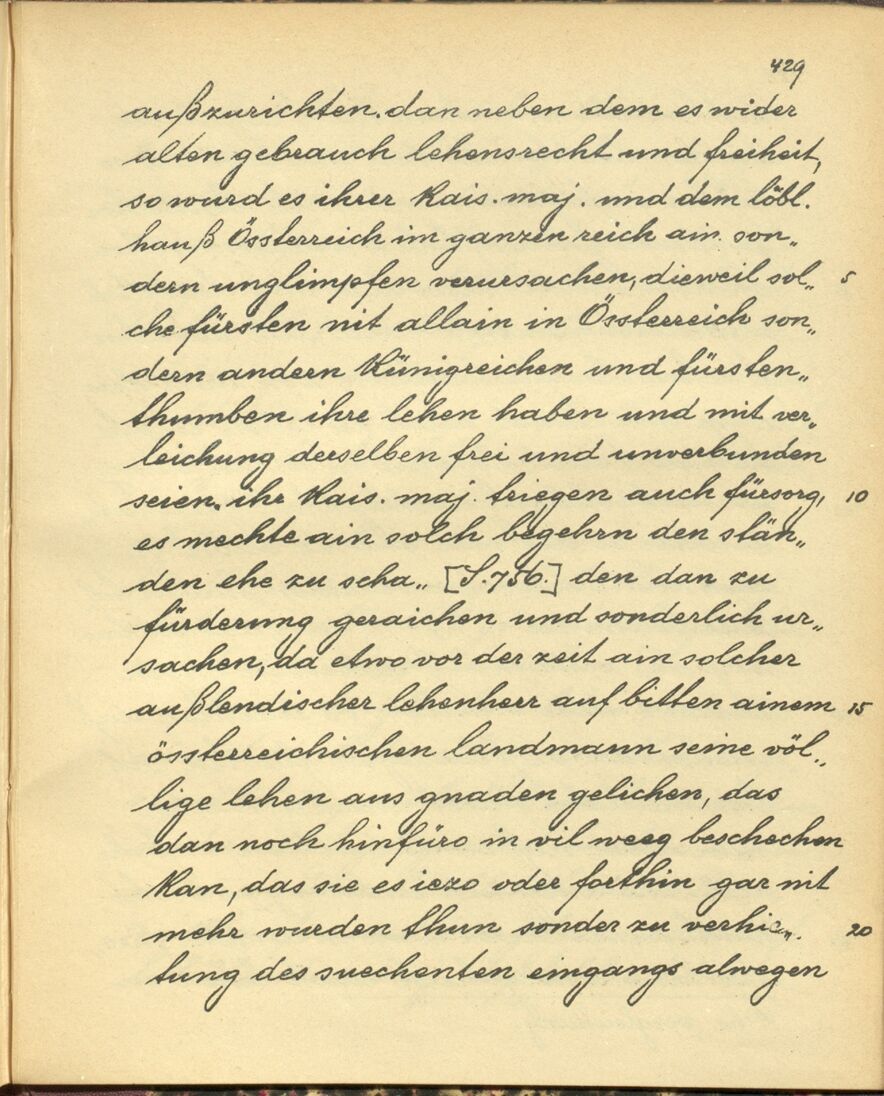 429
außzurichten. dan neben dem es wider
alten gebrauch lehensrecht und freiheit,
so wurd es ihrer Kais. maj. und dem löbl.
hauß Össterreich im ganzen reich ain son„
dern unglimpfen verursachen, dieweil sol„ 5
che fürsten nit allain in Össterreich son„
dern andern Künigreichen und fürsten„
thumben ihre lehen haben und mit ver„
leichung derselben frei und unverbunden
seien. ihr Kais. maj. triegen auch fürsorg, 10
es mechte ain solch begehrn den stän„
den ehe zu scha„ [S. 756.] den dan zu
fürderung geraichen und sonderlich ur„
sachen, da etwo vor der zeit ain solcher
außlendischer lehenherr auf bitten ainem 15
össterreichischen landmann seine völ„
lige lehen aus gnaden gelichen, das
dan noch hinfüro in vil weeg beschechen
Kan, das sie es iezo oder forthin gar nit
mehr wurden thun sonder zu verhie„ 20
tung des suechenten eingangs alwegen